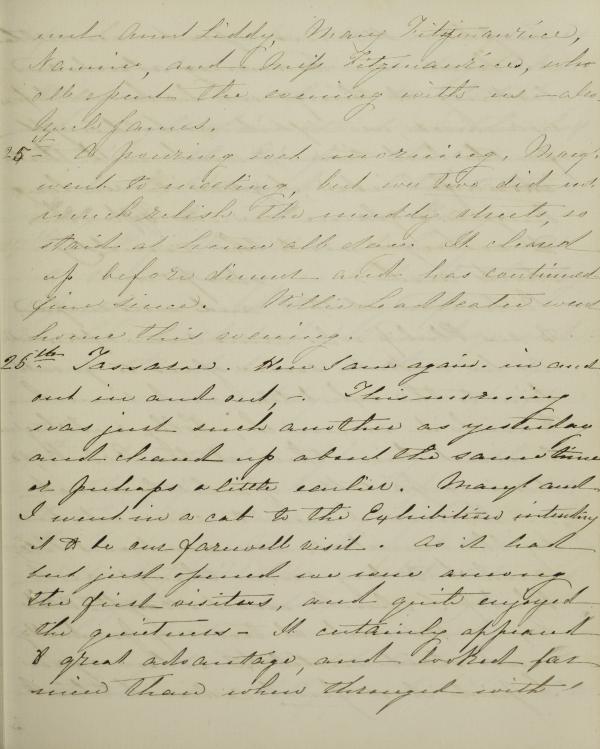 with Aunt Liddy, Mary Fitzmaurice,
Nannie, and Miss Fitzmaurice, who
all spent the evening with us – also
James.
25th A pouring wet morning. Mary
went to meeting, but we two did not
much relish the muddy streets, so
staid at home all day. It cleared
up before dinner and has continued
fine since. Willie Leadbeater went
home this evening.
26th. Tassasoe. Here I am again. in and
out in and out, –. This morning
was just such another as yesterday
and cleared up about the same time
or perhaps a little earlier. Mary and
I went in a cab to the Exhibition intending
it to be our farewell visit. As it had
but just opened we were among
the first visitors, and quite enjoyed
the quietness – It certainly appeared
to great advantage, and looked far
nicer than when thronged with